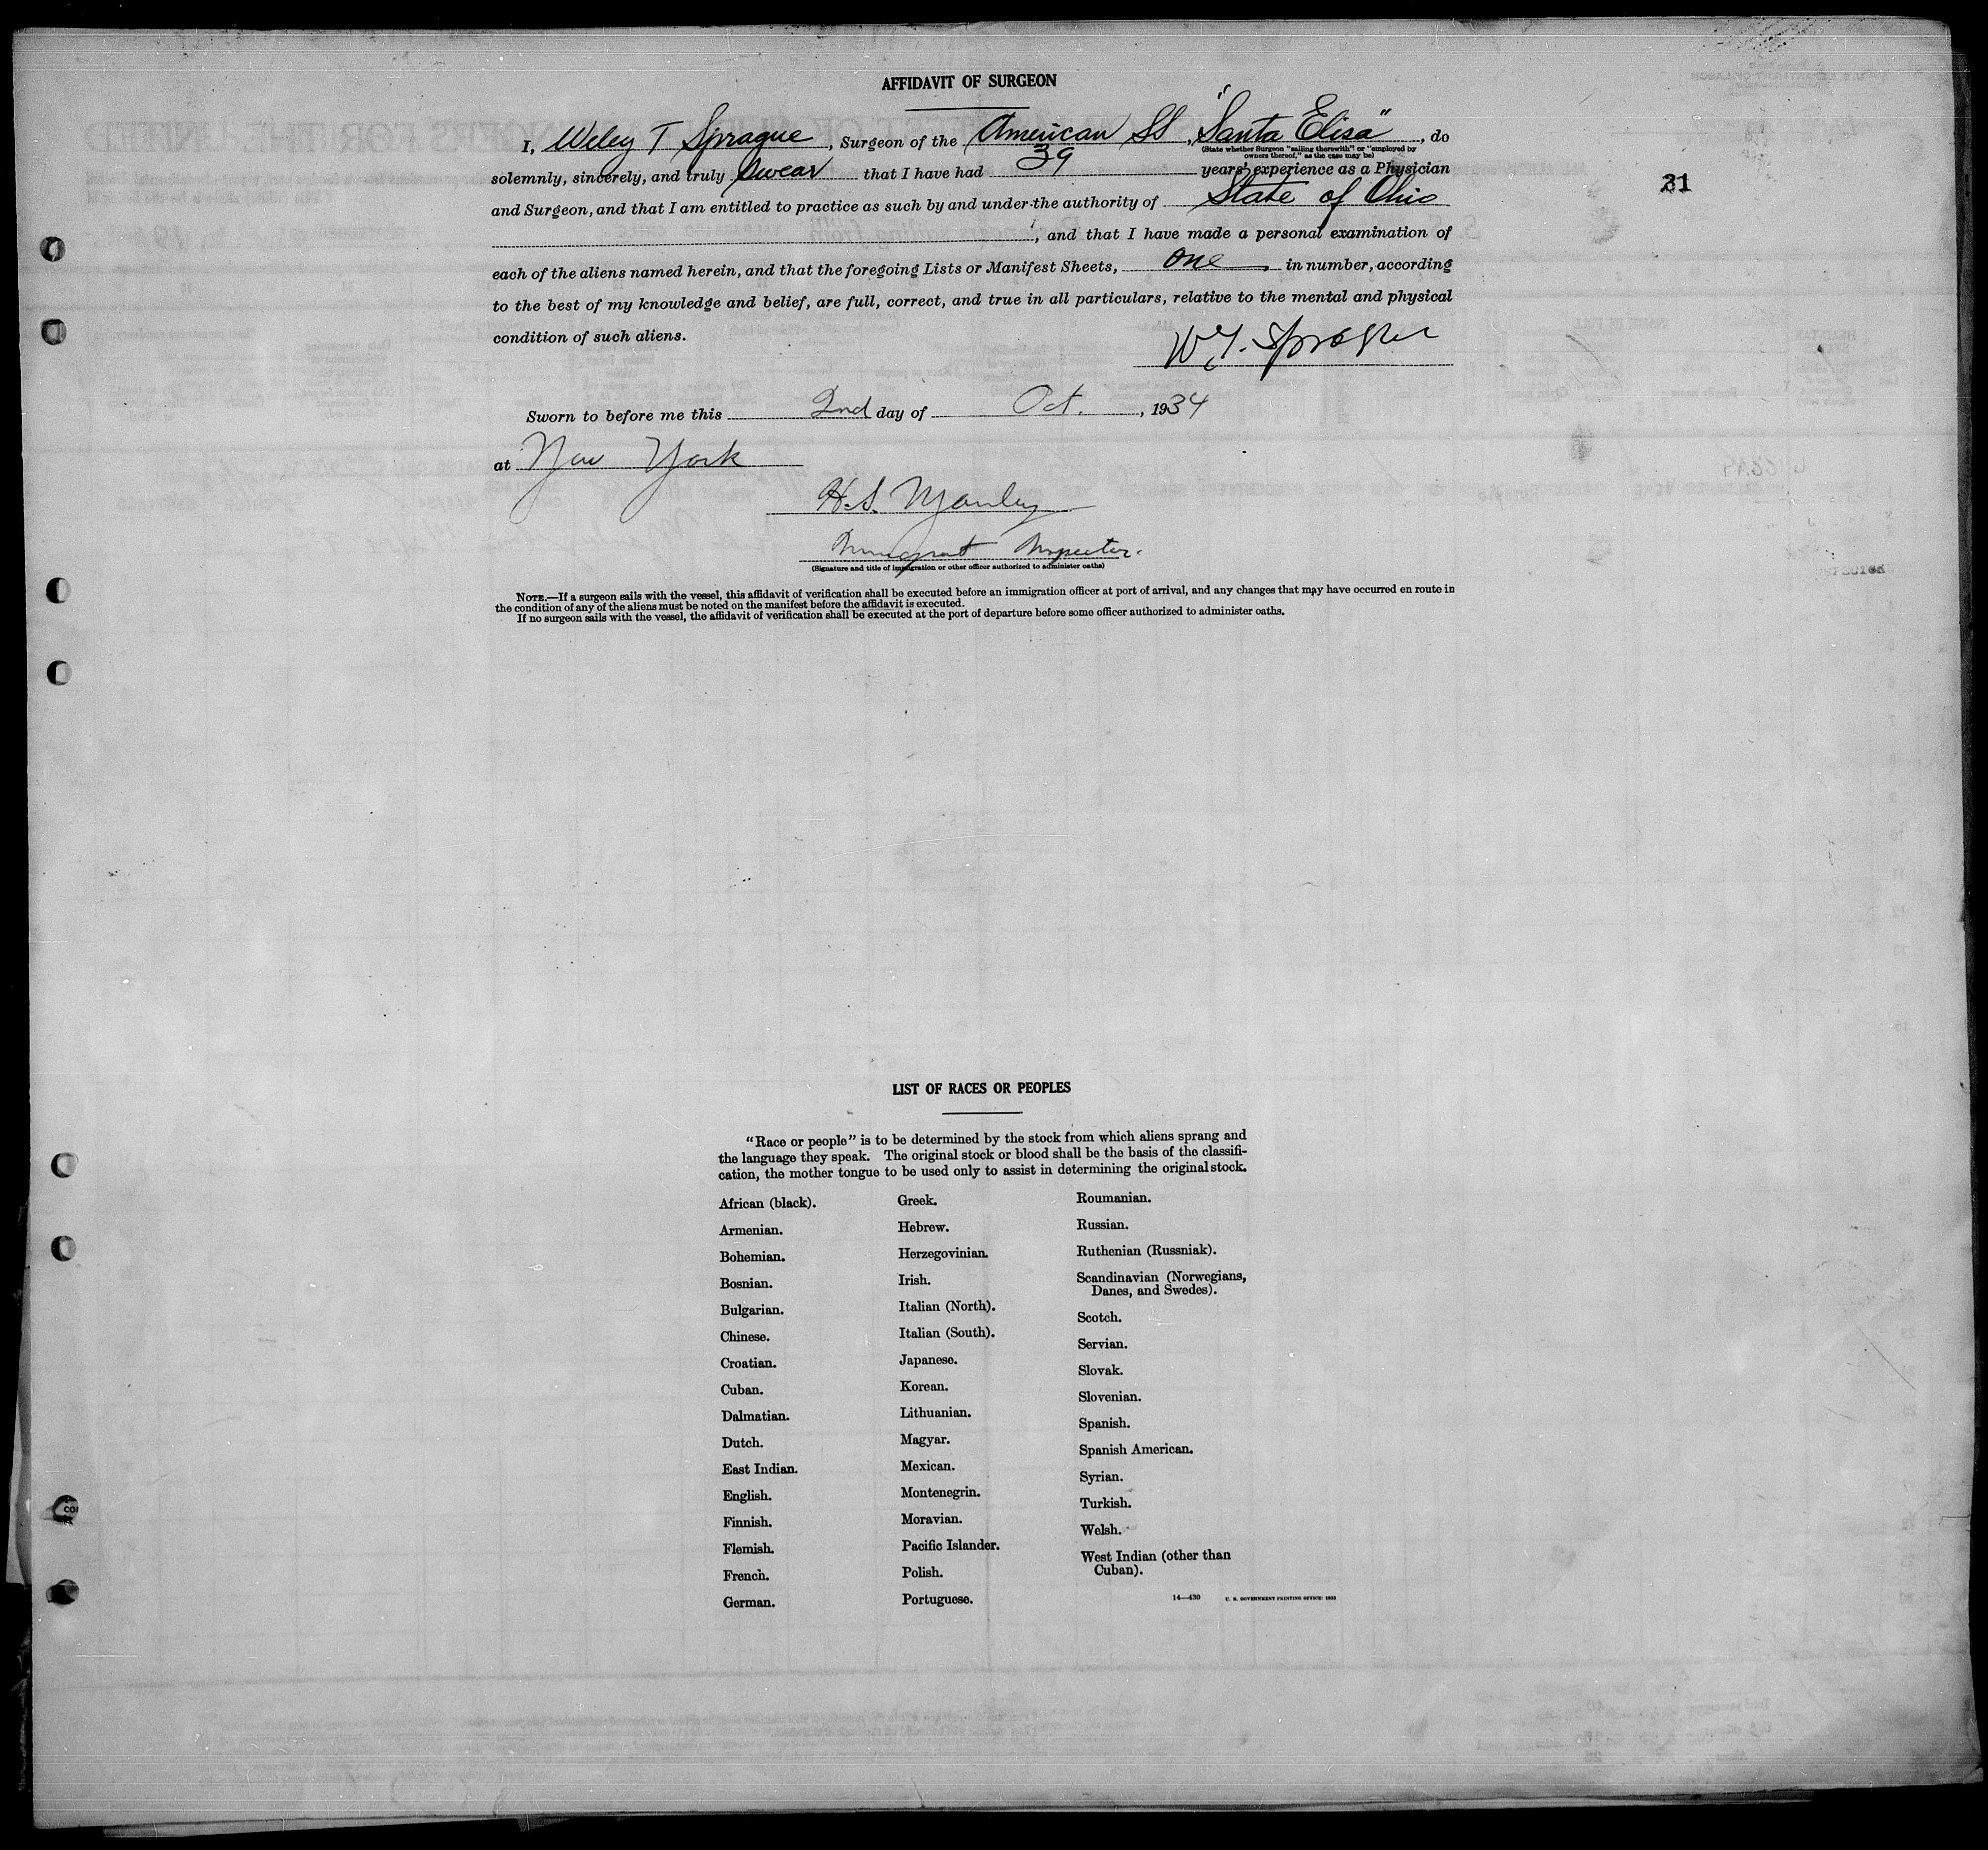 AFFIDAVIT OF SURGEON
I, Weley T Sprague, Surgeon of the American SS, "Santa Elisa", do
(State whether Surgeon "sailing therewith" or "employed by
owners thereof," as the case may be)
solemnly, sincerely, and truly swear that I have had 39 years' experience as a Physician
31
and Surgeon, and that I am entitled to practice as such by and under the authority of State of Ohio
, and that I have made a personal examination of
each of the aliens named herein, and that the foregoing Lists or Manifest Sheets, one in number, according
to the best of my knowledge and belief, are full, correct, and true in all particulars, relative to the mental and physical
condition of such aliens.
W.T. Sprague
Sworn to before me this 2nd day of Oct., 1934
at New York
H.S. Manley
Immigrant Inspector.
(Signature and title of immigration or other officer authorized to administer oaths)
NOTE.—If a surgeon sails with the vessel, this affidavit of verification shall be executed before an immigration officer at port of arrival, and any changes that may have occurred en route in
the condition of any of the aliens must be noted on the manifest before the affidavit is executed.
If no surgeon sails with the vessel, the affidavit of verification shall be executed at the port of departure before some officer authorized to administer oaths.
LIST OF RACES OR PEOPLES
"Race or people" is to be determined by the stock from which aliens sprang and
the language they speak. The original stock or blood shall be the basis of the classifi-
cation, the mother tongue to be used only to assist in determining the original stock.
African (black).
Armenian.
Bohemian.
Bosnian.
Bulgarian.
Chinese.
Croatian.
Cuban.
Dalmatian.
Dutch.
East Indian.
English.
Finnish.
Flemish.
French.
German.
Greek.
Hebrew.
Herzegovinian.
Irish.
Italian (North).
Italian (South).
Japanese.
Korean.
Lithuanian.
Magyar.
Mexican.
Montenegrin.
Moravian.
Pacific Islander.
Polish.
Portuguese.
Roumanian.
Russian.
Ruthenian (Russniak).
Scandinavian (Norwegians,
Danes, and Swedes).
Scotch.
Servian.
Slovak.
Slovenian.
Spanish.
Spanish American.
Syrian.
Turkish.
Welsh.
West Indian (other than
Cuban).
14—430 U. S. GOVERNMENT PRINTING OFFICE